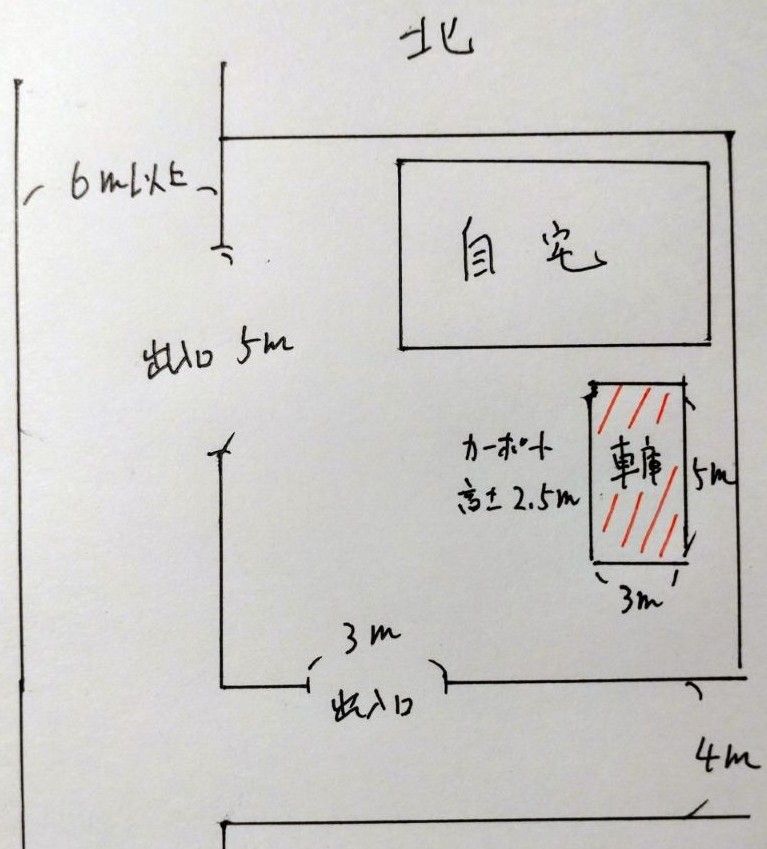 北
6m以上
自宅
出入口 5m
カーポート
高さ 2.5m
車庫
5m
3m
3m
出入口
4m